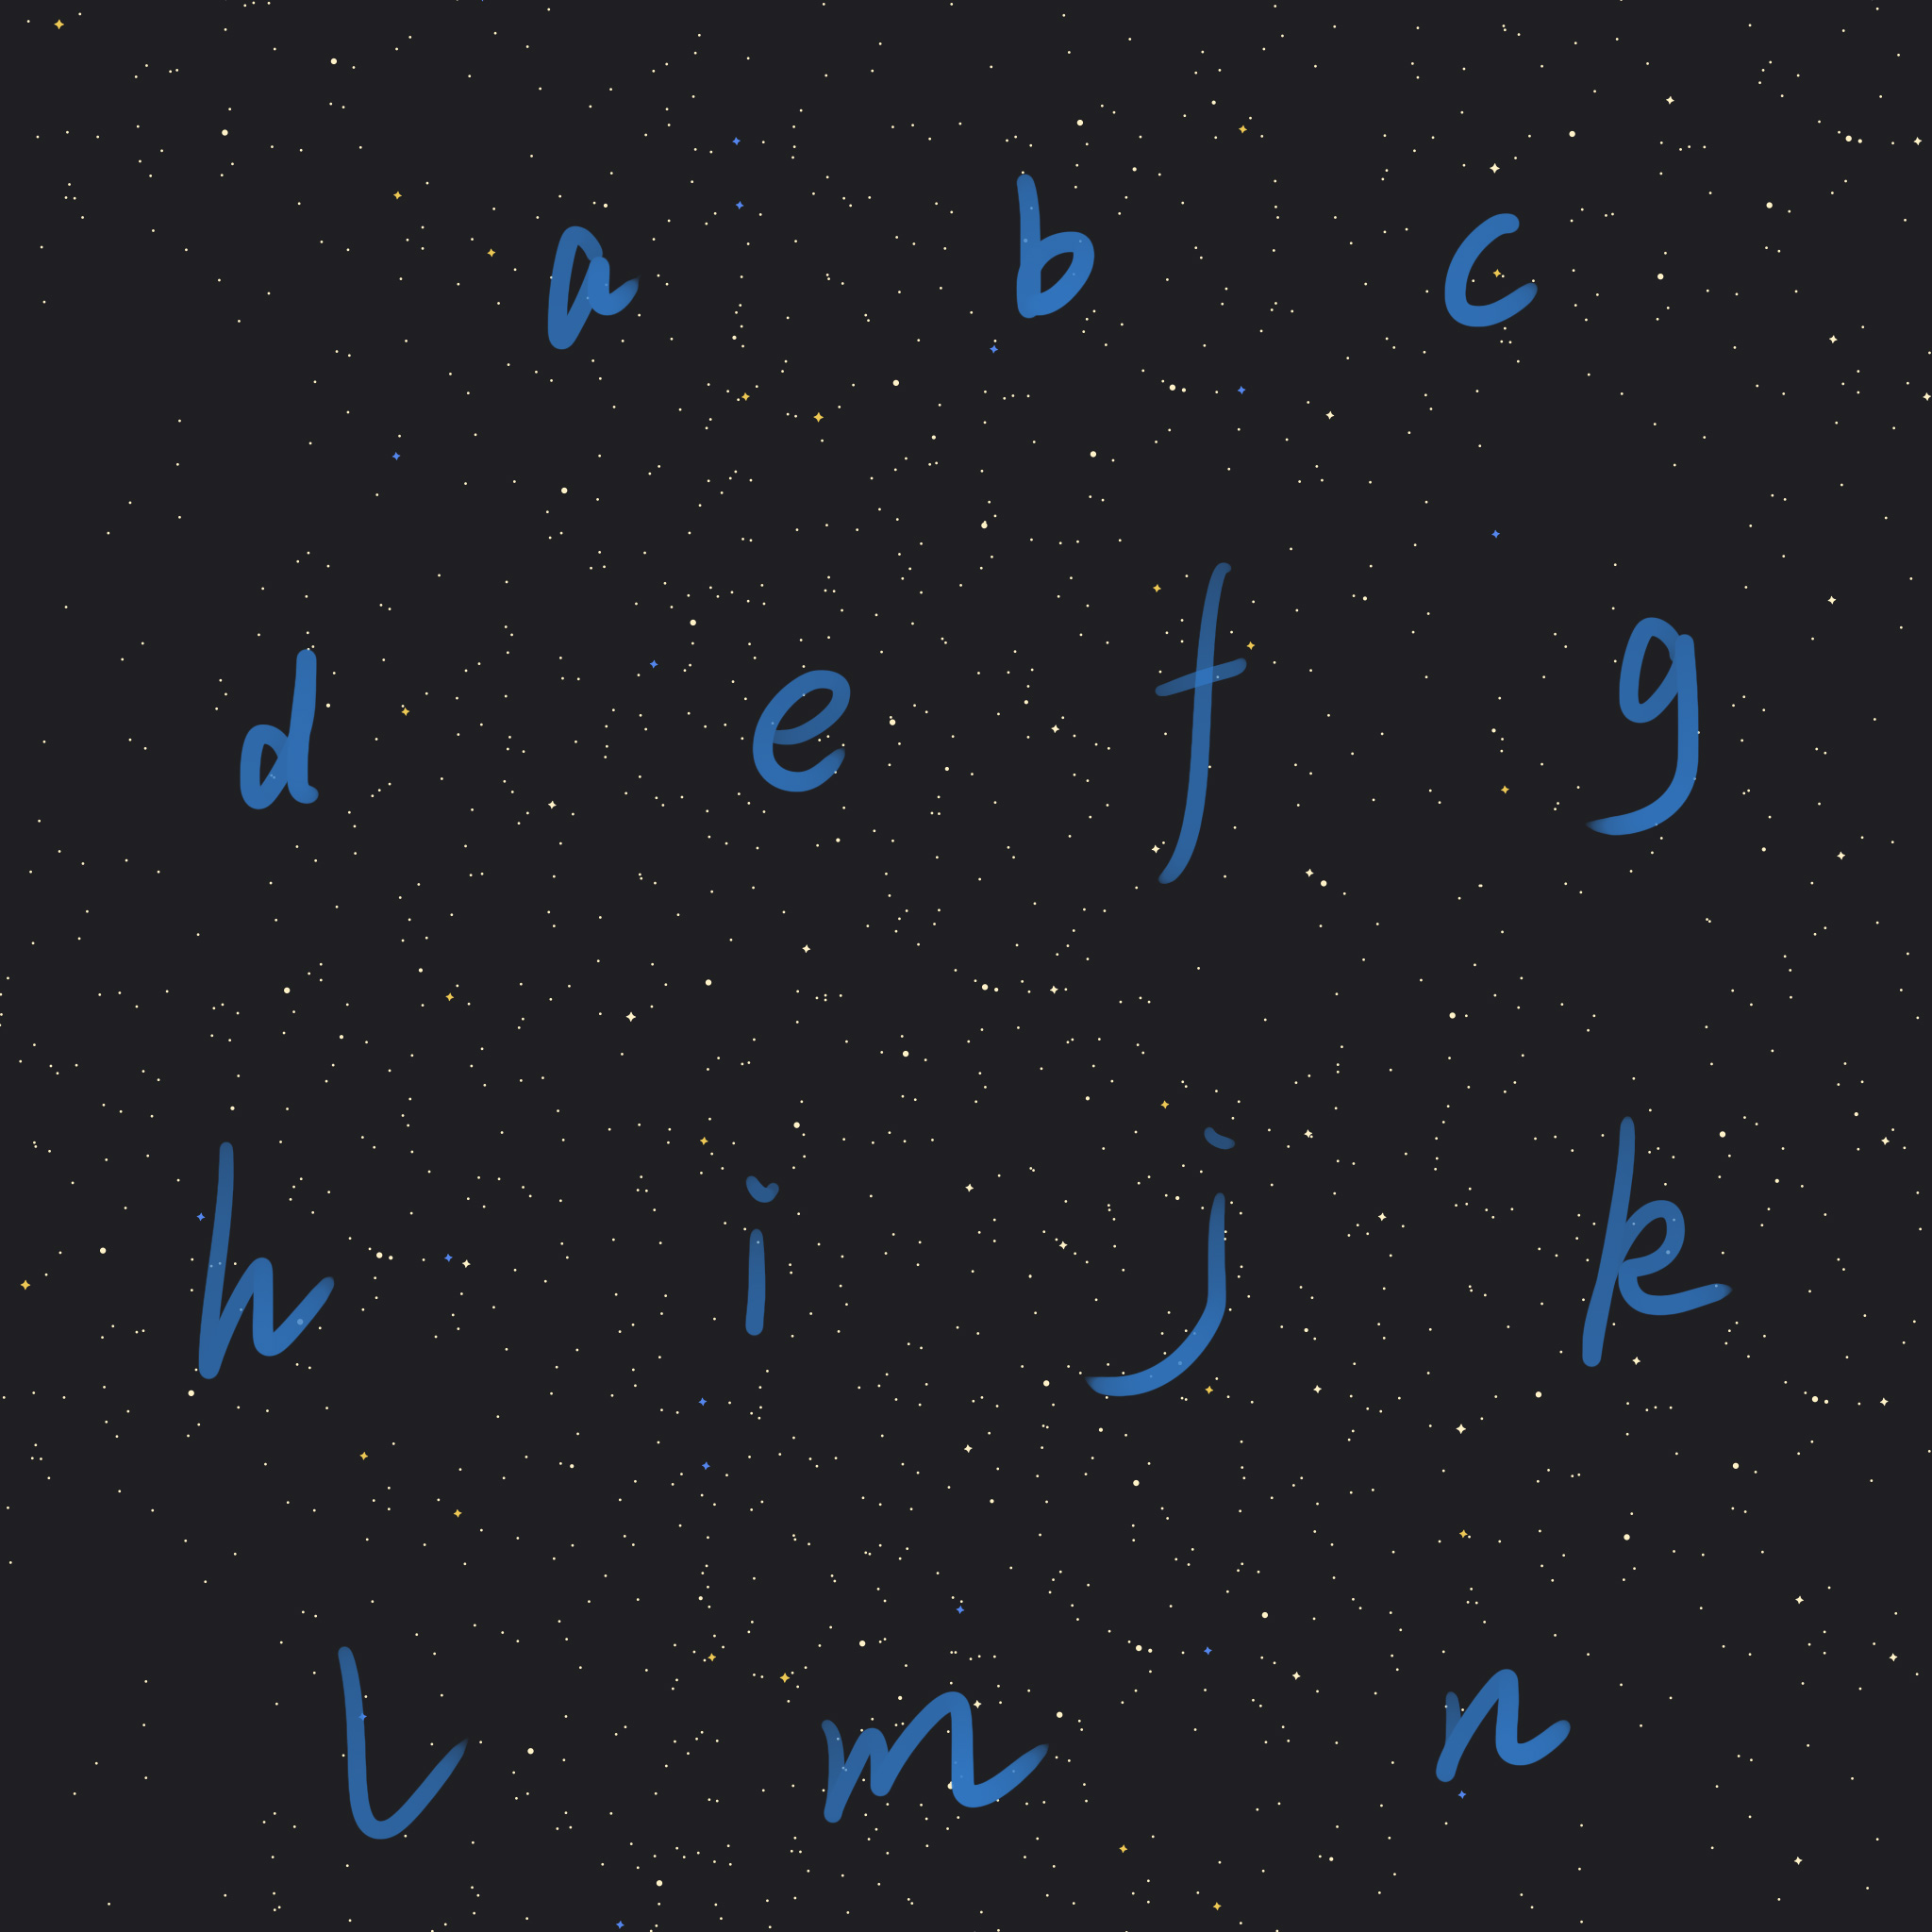 a b c
d e f g
h i j k
l m n